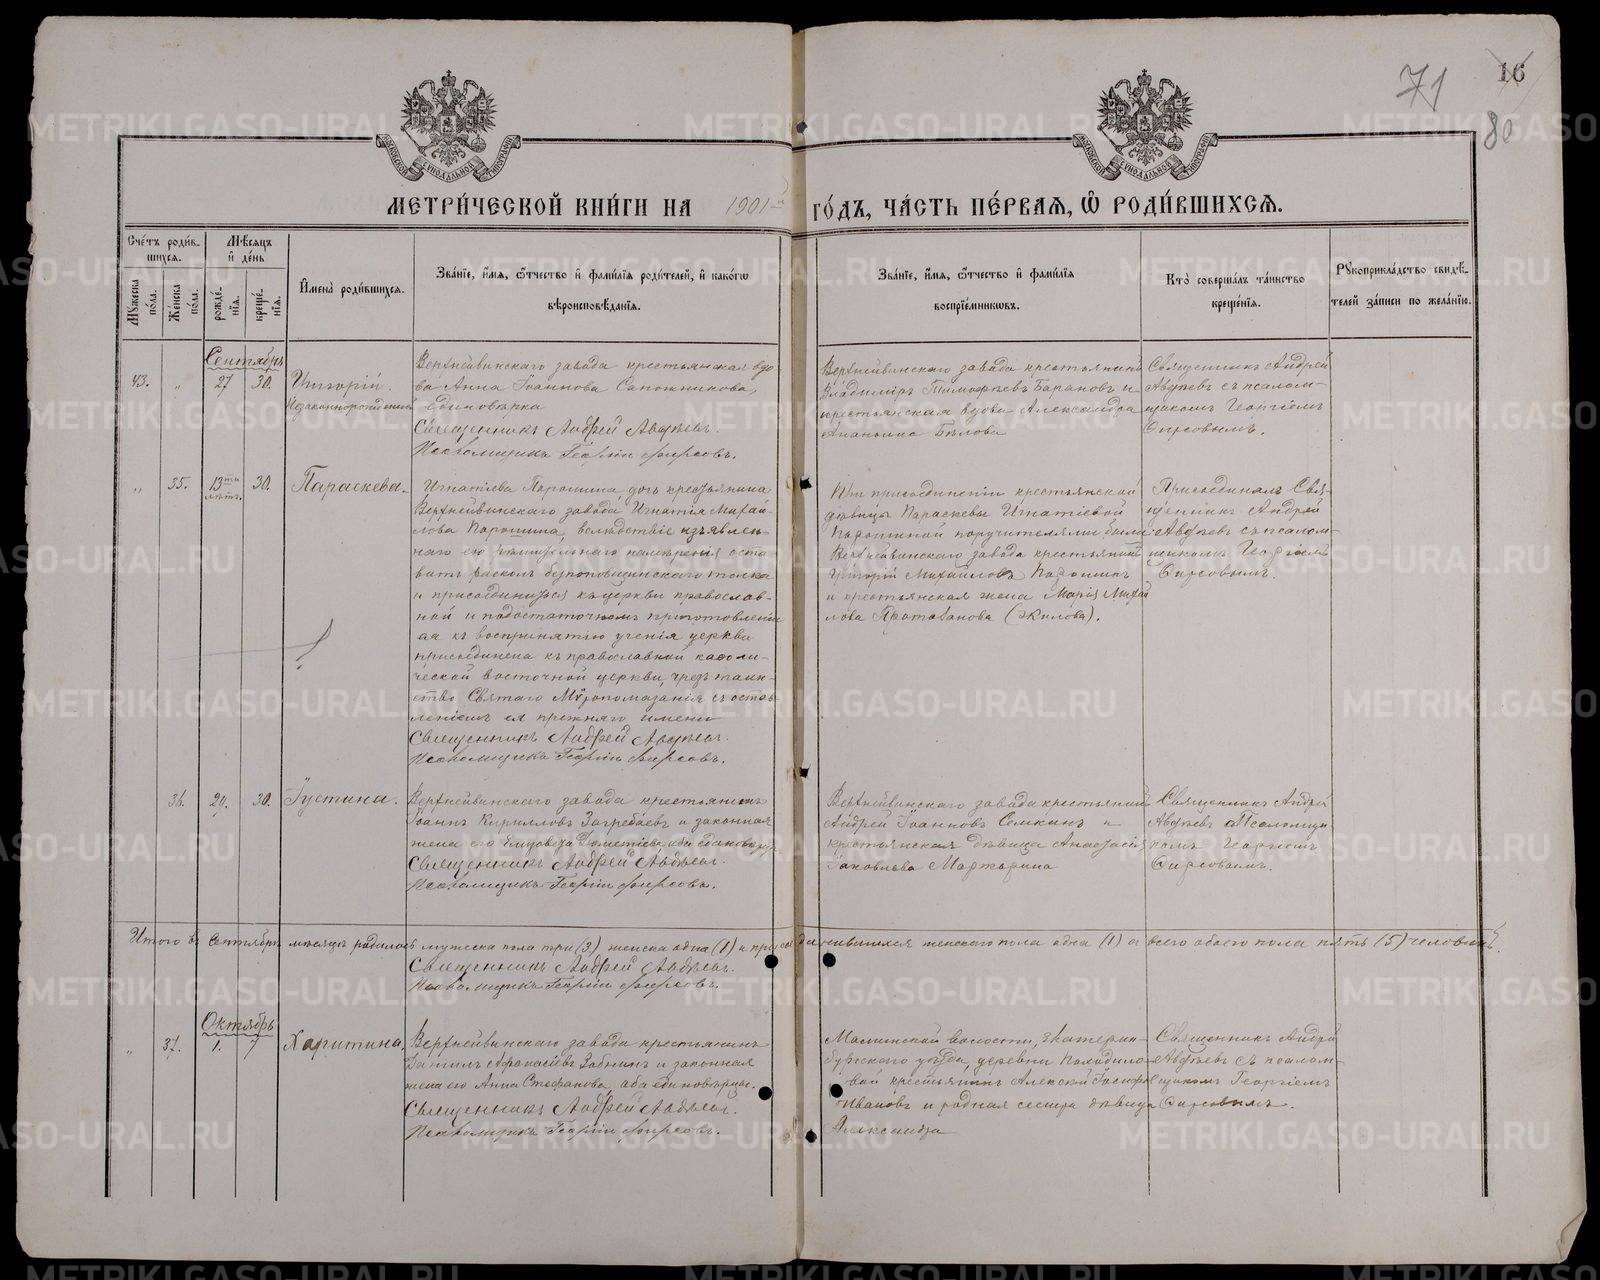 71
16
80
МЕТРИ́ЧЕСКОЙ КНИ́ГИ НА 1901 й ГО́ДЪ, ЧА́СТЬ ПЕ́РВАЯ, Ѡ РОДИ́ВШИХСЯ.
Сче́тъ роди́вшихся.
Мꙋ́жеска по́ла.
Же́нска по́ла.
Мѣ́сяцъ и҆ де́нь
рожде́нїя.
креще́нїя.
И҆мена̀ роди́вшихся.
Зва́нїе, и҆́мя, ѻ҆́тчество и҆ фами́лїя роди́телей, и҆ како́гѡ
вѣроисповѣ́данїя.
Зва́нїе, и҆́мя, ѻ҆́тчество и҆ фами́лїя
воспрїе́мниковъ.
Кто̀ соверша́лъ та́инство
креще́нїя.
Рꙋкоприкла́дство свидѣ́-
телей за́писи по жела́нїю.
Сентябрь
43. „ 27 30. Григорій.
Незаконнорожденный
Верхнейвинскаго завода крестьянская вдо
ва Анна Іоаннова Сапожникова,
единовѣрка
Священникъ Андрей Авдѣевъ.
Псаломщикъ Георгій Фирсовъ.
Верхнейвинскаго завода крестьянинъ
Владимиръ Тимофѣевъ Барановъ и
крестьянская вдова Александра
Бѣлова
Священникъ Андрей
Авдѣевъ съ псалом-
щикомъ Георгіемъ
Фирсовымъ.
„ 35. 13ти лѣтъ. 30. Параскева.
Игнатіева Паршина, дочь крестьянина
Верхнейвинскаго завода Игнатія Михай-
лова Паршина, вслѣдствіе изъявлен-
наго ею рѣшительнаго намѣренія оста
вить расколъ безпоповщинскаго толка
и присоединиться къ церкви православ-
ной и по достаточномъ приготовлені
и къ воспринятію ученія церкви
присоединена къ православной каѳоли-
ческой восточной церкви, чрезъ таин-
ство Святаго Мѵропомазанія съ остав
леніемъ ея прежняго имени
Священникъ Андрей Авдѣевъ.
Псаломщикъ Георгій Фирсовъ.
При присоединеніи крестьянской
дѣвицы Параскевы Игнатіевой
Паршиной поручителями были
Верхнейвинскаго завода крестьянинъ
Григорій Михайловъ Паршинъ
и крестьянская жена Марія Михай
лова Протазанова (Жилова).
Присоединялъ Свя-
щенникъ Андрей
Авдѣевъ съ псалом-
щикомъ Георгіемъ
Фирсовымъ.
36. 29. 30. Іустина.
Верхнейвинскаго завода крестьянинъ
Іоаннъ Кирилловъ Загребаевъ и законная
жена его Елизавета Дометіева, оба единовѣрцы
Священникъ Андрей Авдѣевъ.
Псаломщикъ Георгій Фирсовъ.
Верхнейвинскаго завода крестьянинъ
Андрей Іоанновъ Семкинъ и
крестьянская дѣвица Анастасія
Іаковлева
Священникъ Андрей
Авдѣевъ съ Псаломщи
комъ Георгіемъ
Фирсовымъ.
Итого въ Сентябрѣ мѣсяцѣ родилось мужеска пола три (3) женска одна (1) и присоединившихся женскаго пола одна (1) а всего обоего пола пять (5) человѣкъ.
Священникъ Андрей Авдѣевъ.
Псаломщикъ Георгій Фирсовъ.
Октябрь
„ 37. 1. 7 Харитина.
Верхнейвинскаго завода крестьянинъ
Аѳанасіевъ и законная
жена его Анна Стефанова, оба единовѣрцы.
Священникъ Андрей Авдѣевъ.
Псаломщикъ Георгій Фирсовъ.
волости, Екатерин-
бургскаго уѣзда, деревни
вой крестьянинъ Алексѣй
Ивановъ и родная сестра дѣвица
Александра
Священникъ Андрей
Авдѣевъ съ псалом-
щикомъ Георгіемъ
Фирсовымъ.
METRIKI.GASO-URAL.RU